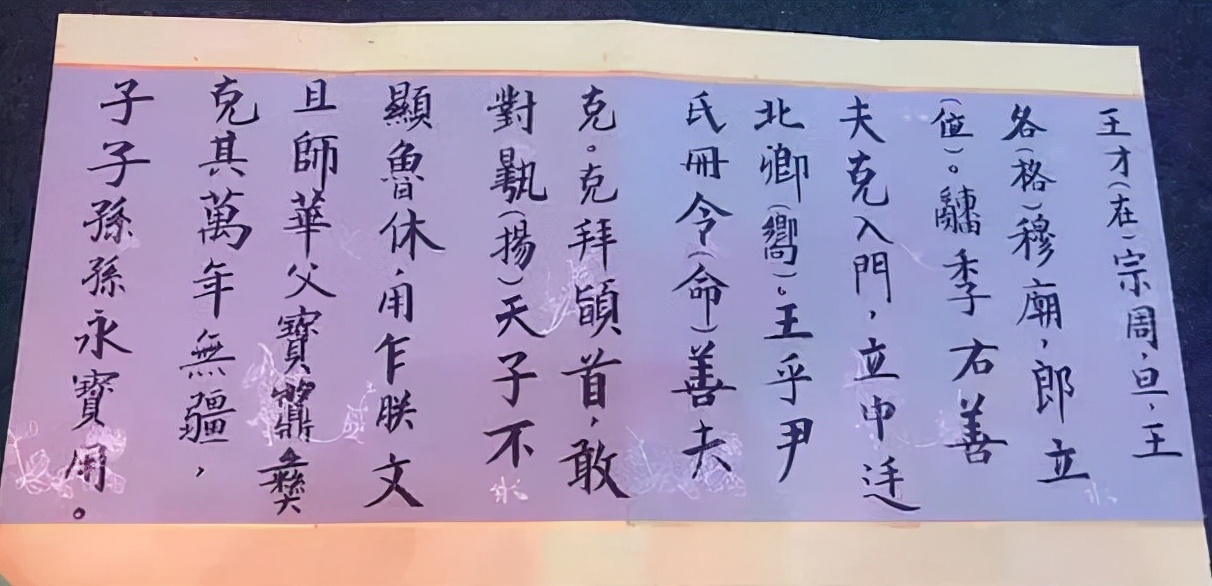 王才(在)宗周,旦,王
各(格)穆廟,郎立
(位)。䌛季右善
夫克入門,立中廷
北卿(嚮)。王乎尹
氏冊令(命)善夫
克。克拜䭫首,敢
對揚(揚)天子不
顯魯休,用乍朕文
且師華父寶鼎彝
克其萬年無疆,
子子孫孫永寶用。